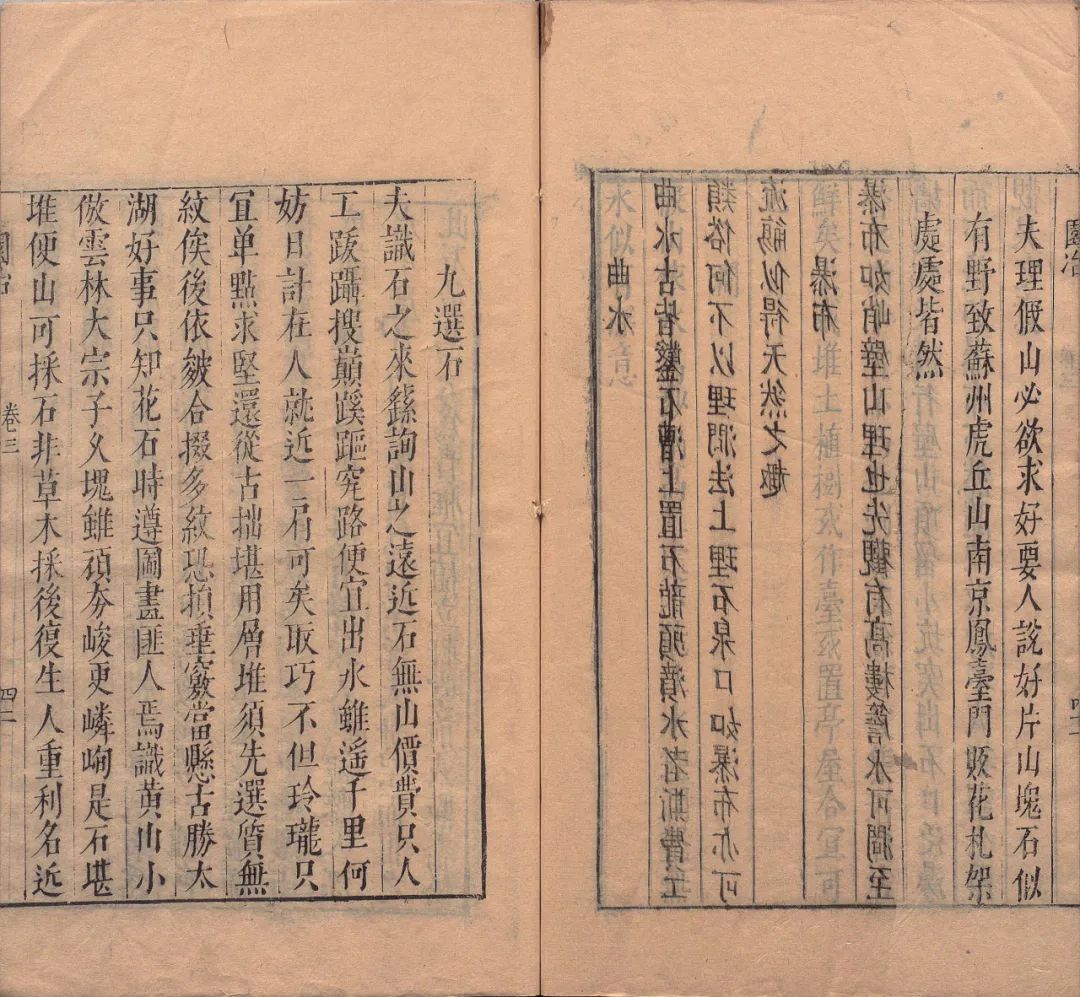 園冶
夫理假山必欲求好要人說好片山塊石似
有野致蘇州虎丘山南京鳳臺門販花札架
處處皆然
瀑布如峭壁山理也先觀有高樓簷水可澗至
瀑布
流觴似得天然之趣
類俗何不以理澗法上理石泉口如瀑布亦可
曲水古皆鑿石槽上置石龍頭濆水者斷費工
曲水
九選石
夫識石之來繇詢山之遠近石無山價費只人
工跋躡搜巔蹊䠓究路便宜出水雖遙千里何
妨日計在人就近一肩可矣取巧不但玲瓏只
宜单點求堅還從古拙堪用層堆須先選質無
紋俟後依皴合掇多紋恐損垂竅當懸古勝太
湖好事只知花石時遵圖畫匪人焉識黄山小
倣雲林大宗子久塊雖頑夯峻更嶙峋是石堪
堆便山可採石非草木採後復生人重利名近
園冶
卷三
四二